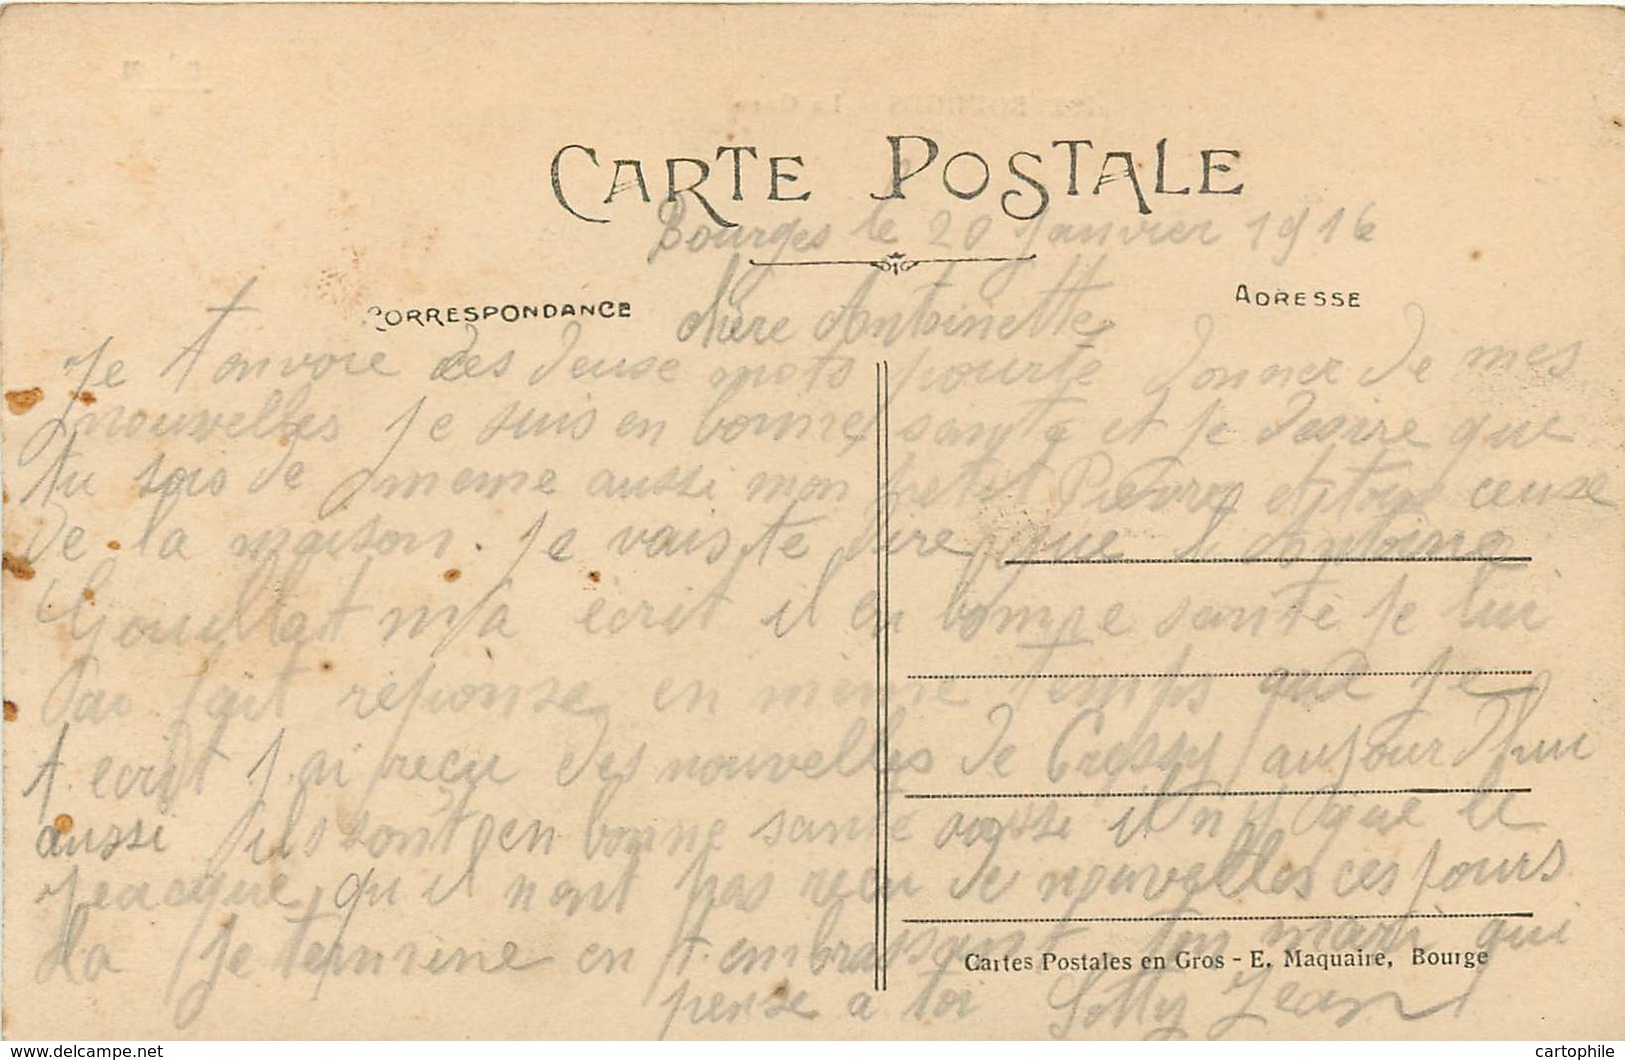 CARTE POSTALE
Bourges le 20 janvier 1916
CORRESPONDANCE
ADRESSE
chère Antoinette
Je t'anvoie des deuse mots pourte donner de mes
nouvelles je suis en bonne sante et je desire que
tu sois de meme aussi mon petit Pierre et tous ceuse
de la maison. je vais te dire que Antoine
m'a écrit il en bonne santé je lui
fait réponse en même temps que je
t ecrit j.ai reçu des nouvelles de Cressy aujourd'hui
aussi ils sont en bonne santé aussi il n'y que le
qu il n ont pas reçu de nouvelles ces jours
la je termine en t.embrassant ton mari qui
pense a toi Jean
Cartes Postales en Gros - E. Maquaire, Bourge
cartophile
delcampe.net